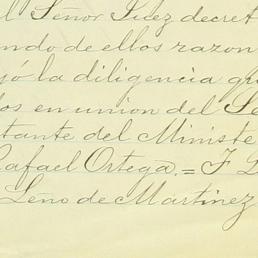 el Señor Juez decret
ando de ellos razon
jó la diligencia qu
los en union del Se
tante del Ministe
Rafael Ortega.= F L
Leno de Martinez